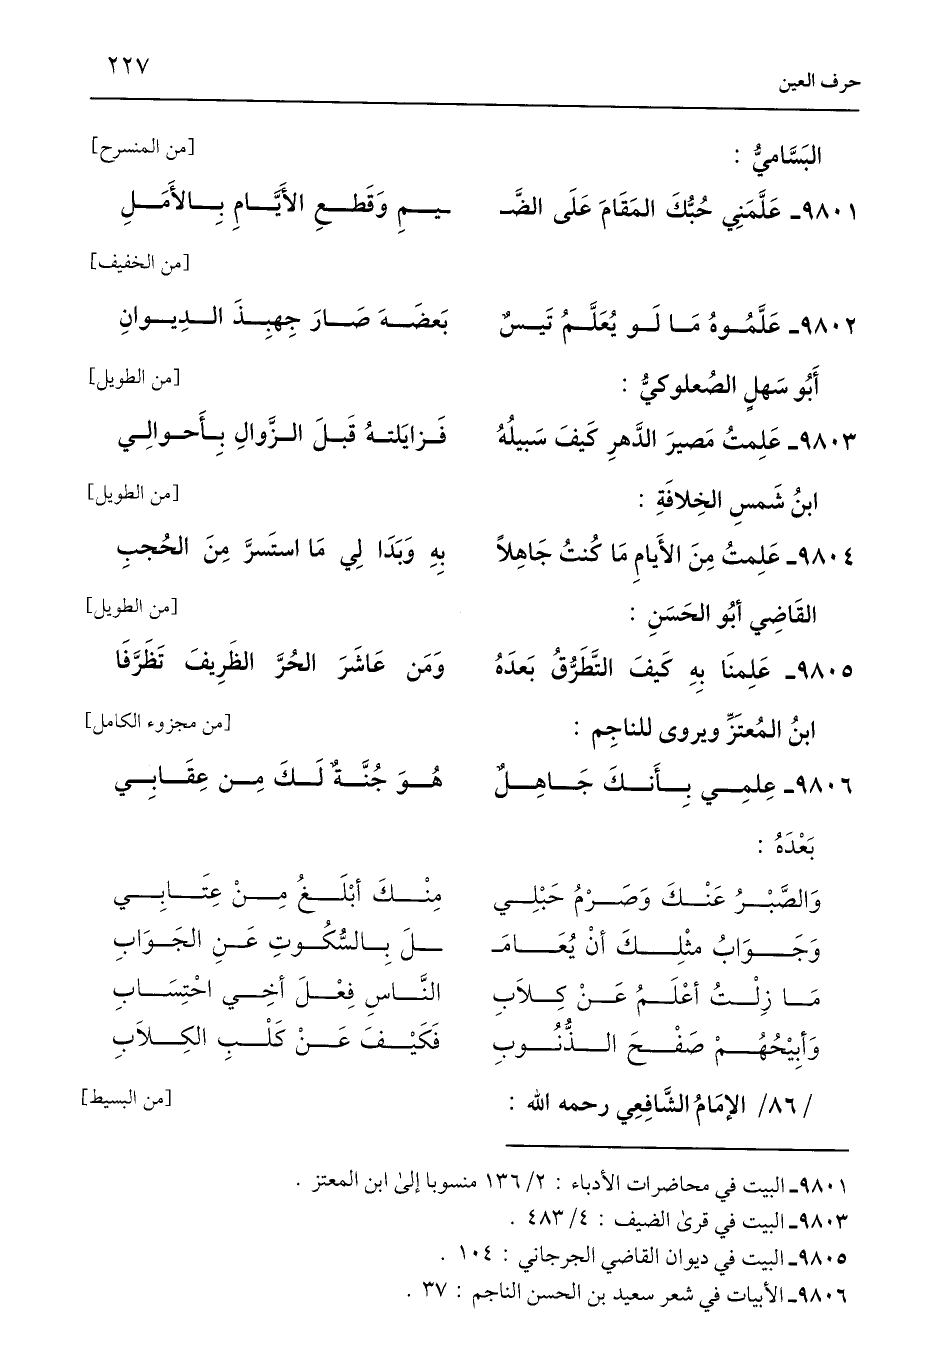 ٢٢٧
حرف العين
البَسَّاميُّ : [من المنسرح]
٩٨٠١ـ عَلَّمَنِي حُبُّكَ المَقَامَ عَلَى الضَّـ ـيـمِ وَقَطـعِ الأَيَّـامِ بِـالأَمَـلِ
[من الخفيف]
٩٨٠٢ـ عَلَّمُوهُ مَـا لَـو يُعَلَّـمُ تَيـسٌ بَعضَـهَ صَـارَ جِهبِـذَ الـدِيـوانِ
أَبُو سَهلٍ الصُعلوكيُّ : [من الطويل]
٩٨٠٣ـ عَلِمتُ مَصيرَ الدَّهرِ كَيفَ سَبيلُهُ فَـزايَلتـهُ قَبـلَ الـزَّوالِ بِـأَحـوالـي
ابنُ شَمسِ الخِلافَةِ : [من الطويل]
٩٨٠٤ـ عَلِمتُ مِنَ الأَيامِ مَا كُنتُ جَاهِلاً بِهِ وَبَدَا لِي مَا استَسرَّ مِنَ الحُجبِ
القَاضِي أبُو الحَسَنِ : [من الطويل]
٩٨٠٥ـ عَلِمنَا بِهِ كَيفَ التَّطَرُّقُ بَعدَهُ وَمَن عَاشَرَ الحُرَّ الظَريفَ تَظَرَّفَا
ابنُ المُعتَزِّ ويروى للناجِم : [من مجزوء الكامل]
٩٨٠٦ـ عِلمِـي بِـأَنـكَ جَـاهِـلٌ هُـوَ جُنَّـةٌ لَـكَ مِـن عِقَـابـي
بَعْدَهُ :
وَالصَّبْـرُ عَنْـكَ وَصَـرْمُ حَبْلِـي مِنْـكَ أبْلَـغُ مِـنْ عِتَـابِـي
وَجَـوَابُ مثْلِـكَ أنْ يُعَـامَـ ـلَ بِـالسُّكُـوتِ عَـنِ الجَـوَابِ
مَـا زِلْـتُ أعْلَـمُ عَـنْ كِـلاَبِ النَّـاسِ فِعْـلَ أخِـي احْتِسَـابِ
وَأبِيْحُهُـمْ صَفْـحَ الـذُّنُـوبِ فَكَيْـفَ عَـنْ كَلْـبِ الكِـلاَبِ
/ ٨٦/ الإمَامُ الشَّافِعِي رحمه الله : [من البسيط]
٩٨٠١ـ البيت في محاضرات الأدباء : ٢/ ١٣٦ منسوبا إلىٰ ابن المعتز .
٩٨٠٣ـ البيت في قرىٰ الضيف : ٤/ ٤٨٣ .
٩٨٠٥ـ البيت في ديوان القاضي الجرجاني : ١٠٤ .
٩٨٠٦ـ الأبيات في شعر سعيد بن الحسن الناجم : ٣٧ .